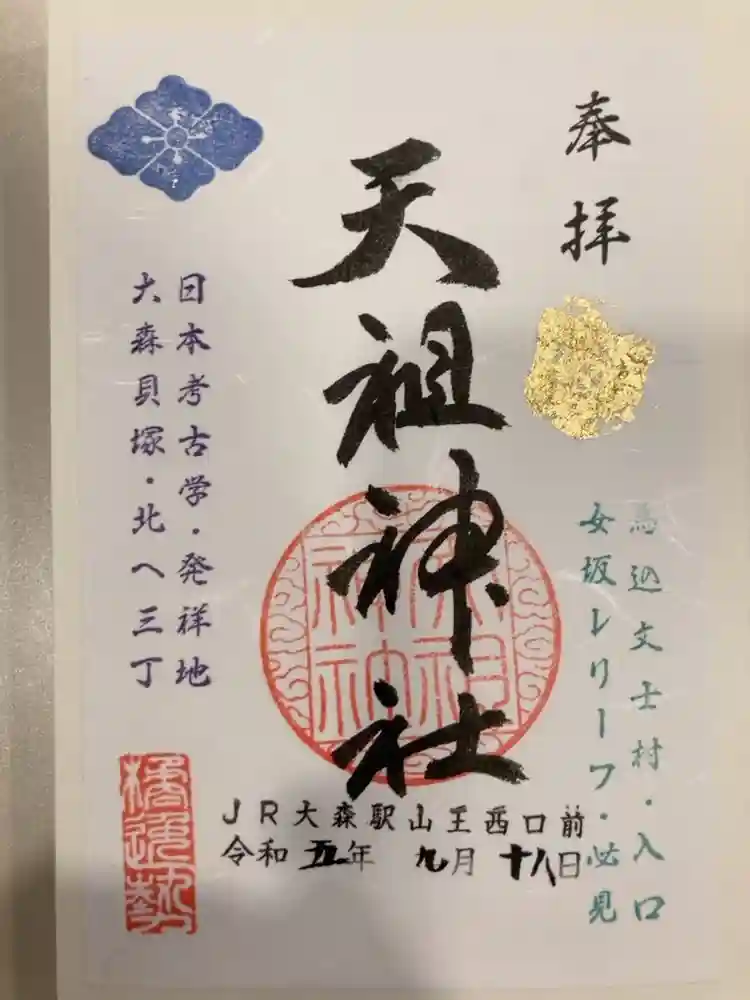 奉拝
馬込文士村・入口
女坂レリーフ・必見
天祖神社
日本考古学・発祥地
大森貝塚・北へ三丁
JR大森駅山王西口前
令和五年 九月十八日